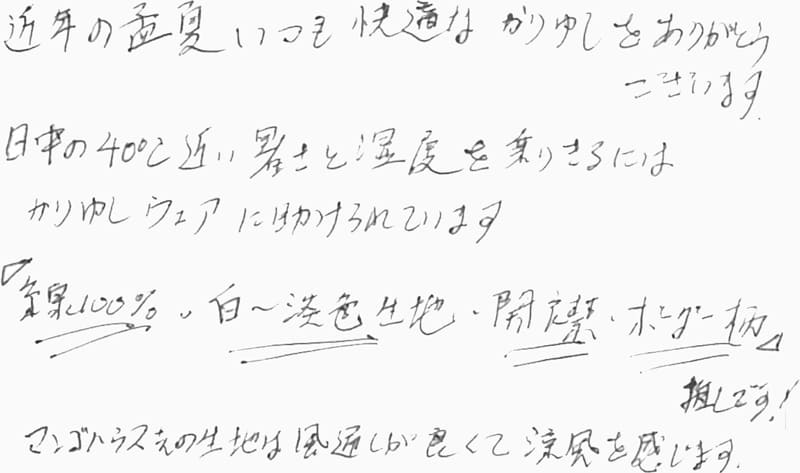 近年の孟夏いつも快適なかりゆしをありがとう
ございます。
日中の40℃近い暑さと湿度を乗りきるには
かりゆしウェアに助けられています
『綿100%、白〜淡色生地・開襟・ボーダー柄』
推しです!
マンゴハウスさんの生地は風通しが良くて涼風を感じます。